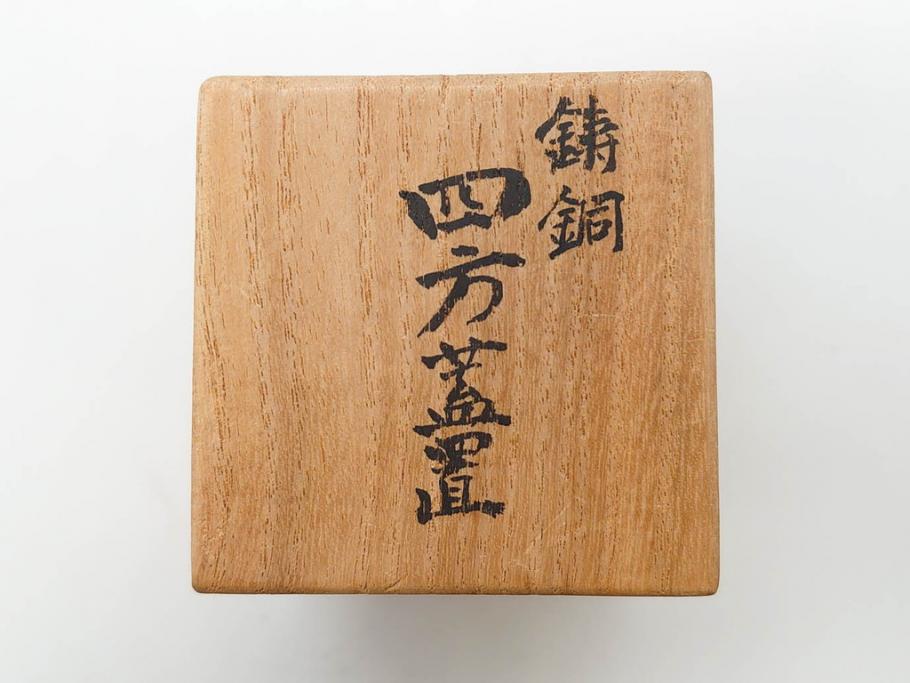 鋳銅
四方蓋置